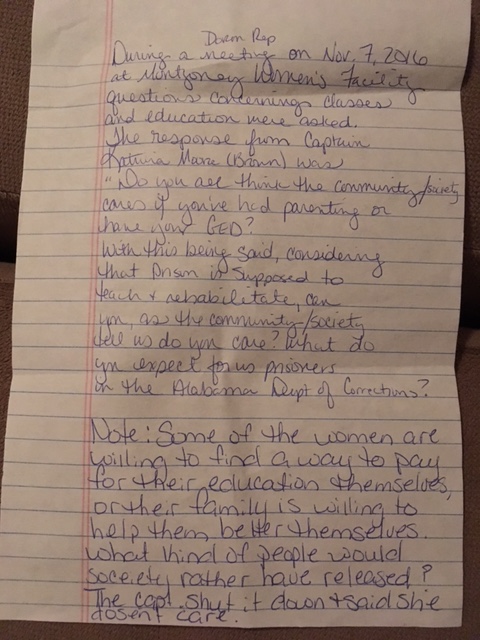 Dorm Rep
During a meeting on Nov. 7, 2016
at Montgomery Women's Facility
questions concerning classes
and education were asked.
The response from Captain
Katrina Marie (Brown) was
"Do you all think the community/society
cares if you've had parenting or
have your GED?
With this being said, considering
that Prison is supposed to
teach & rehabilitate, can
you, as the community/society
tell us do you care? What do
you expect for us prisoners
in the Alabama Dept of Corrections?
Note: Some of the women are
willing to find a way to pay
for their education themselves,
or their family is willing to
help them better themselves.
What kind of people would
soceiety rather have released?
The capt. shut it down & said she
dosent care.